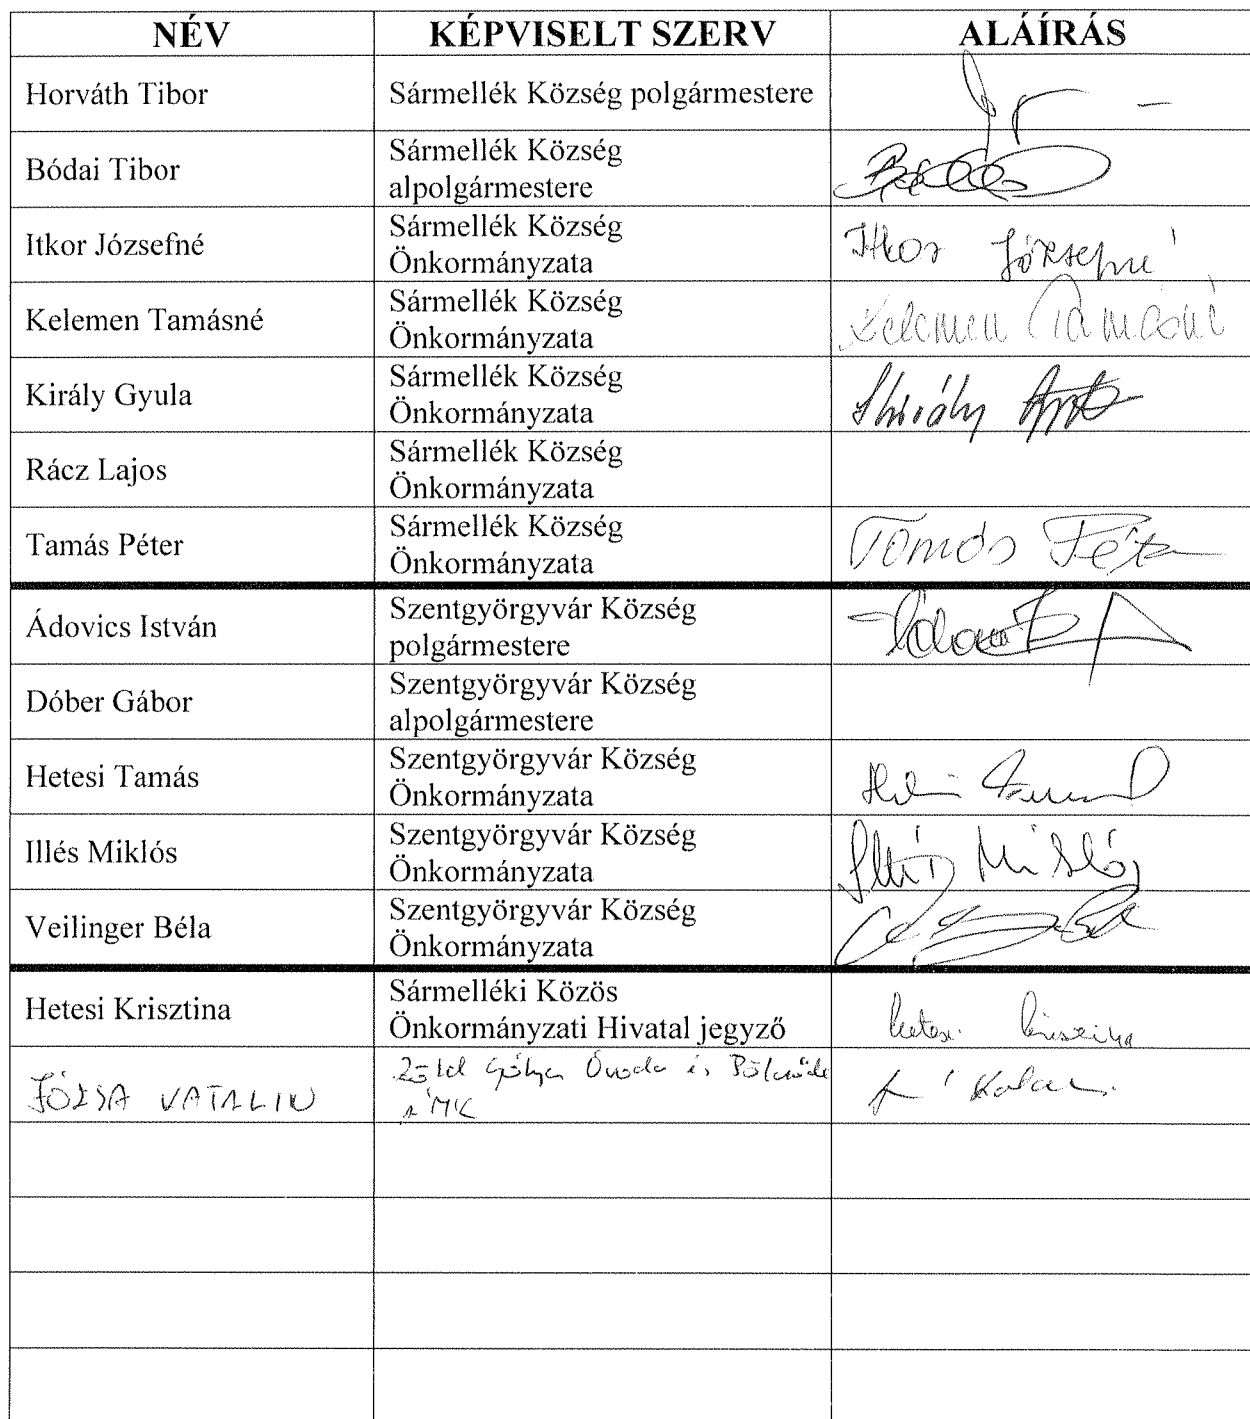 NÉV KÉPVISELT SZERV ALÁÍRÁS
Horváth Tibor Sármellék Község polgármestere
Bódai Tibor Sármellék Község
alpolgármestere
Itkor Józsefné Sármellék Község
Önkormányzata Itkor Józsefné
Kelemen Tamásné Sármellék Község
Önkormányzata Kelemen Tamásné
Király Gyula Sármellék Község
Önkormányzata Király
Rácz Lajos Sármellék Község
Önkormányzata
Tamás Péter Sármellék Község
Önkormányzata Tamás Péter
Ádovics István Szentgyörgyvár Község
polgármestere
Dóber Gábor Szentgyörgyvár Község
alpolgármestere
Hetesi Tamás Szentgyörgyvár Község
Önkormányzata
Illés Miklós Szentgyörgyvár Község
Önkormányzata Illés Miklós
Veilinger Béla Szentgyörgyvár Község
Önkormányzata
Hetesi Krisztina Sármelléki Közös
Önkormányzati Hivatal jegyző Hetesi Krisztina
JÓZSA KATALIN Zöld Gólya Óvoda és Bölcsőde
ÁMK